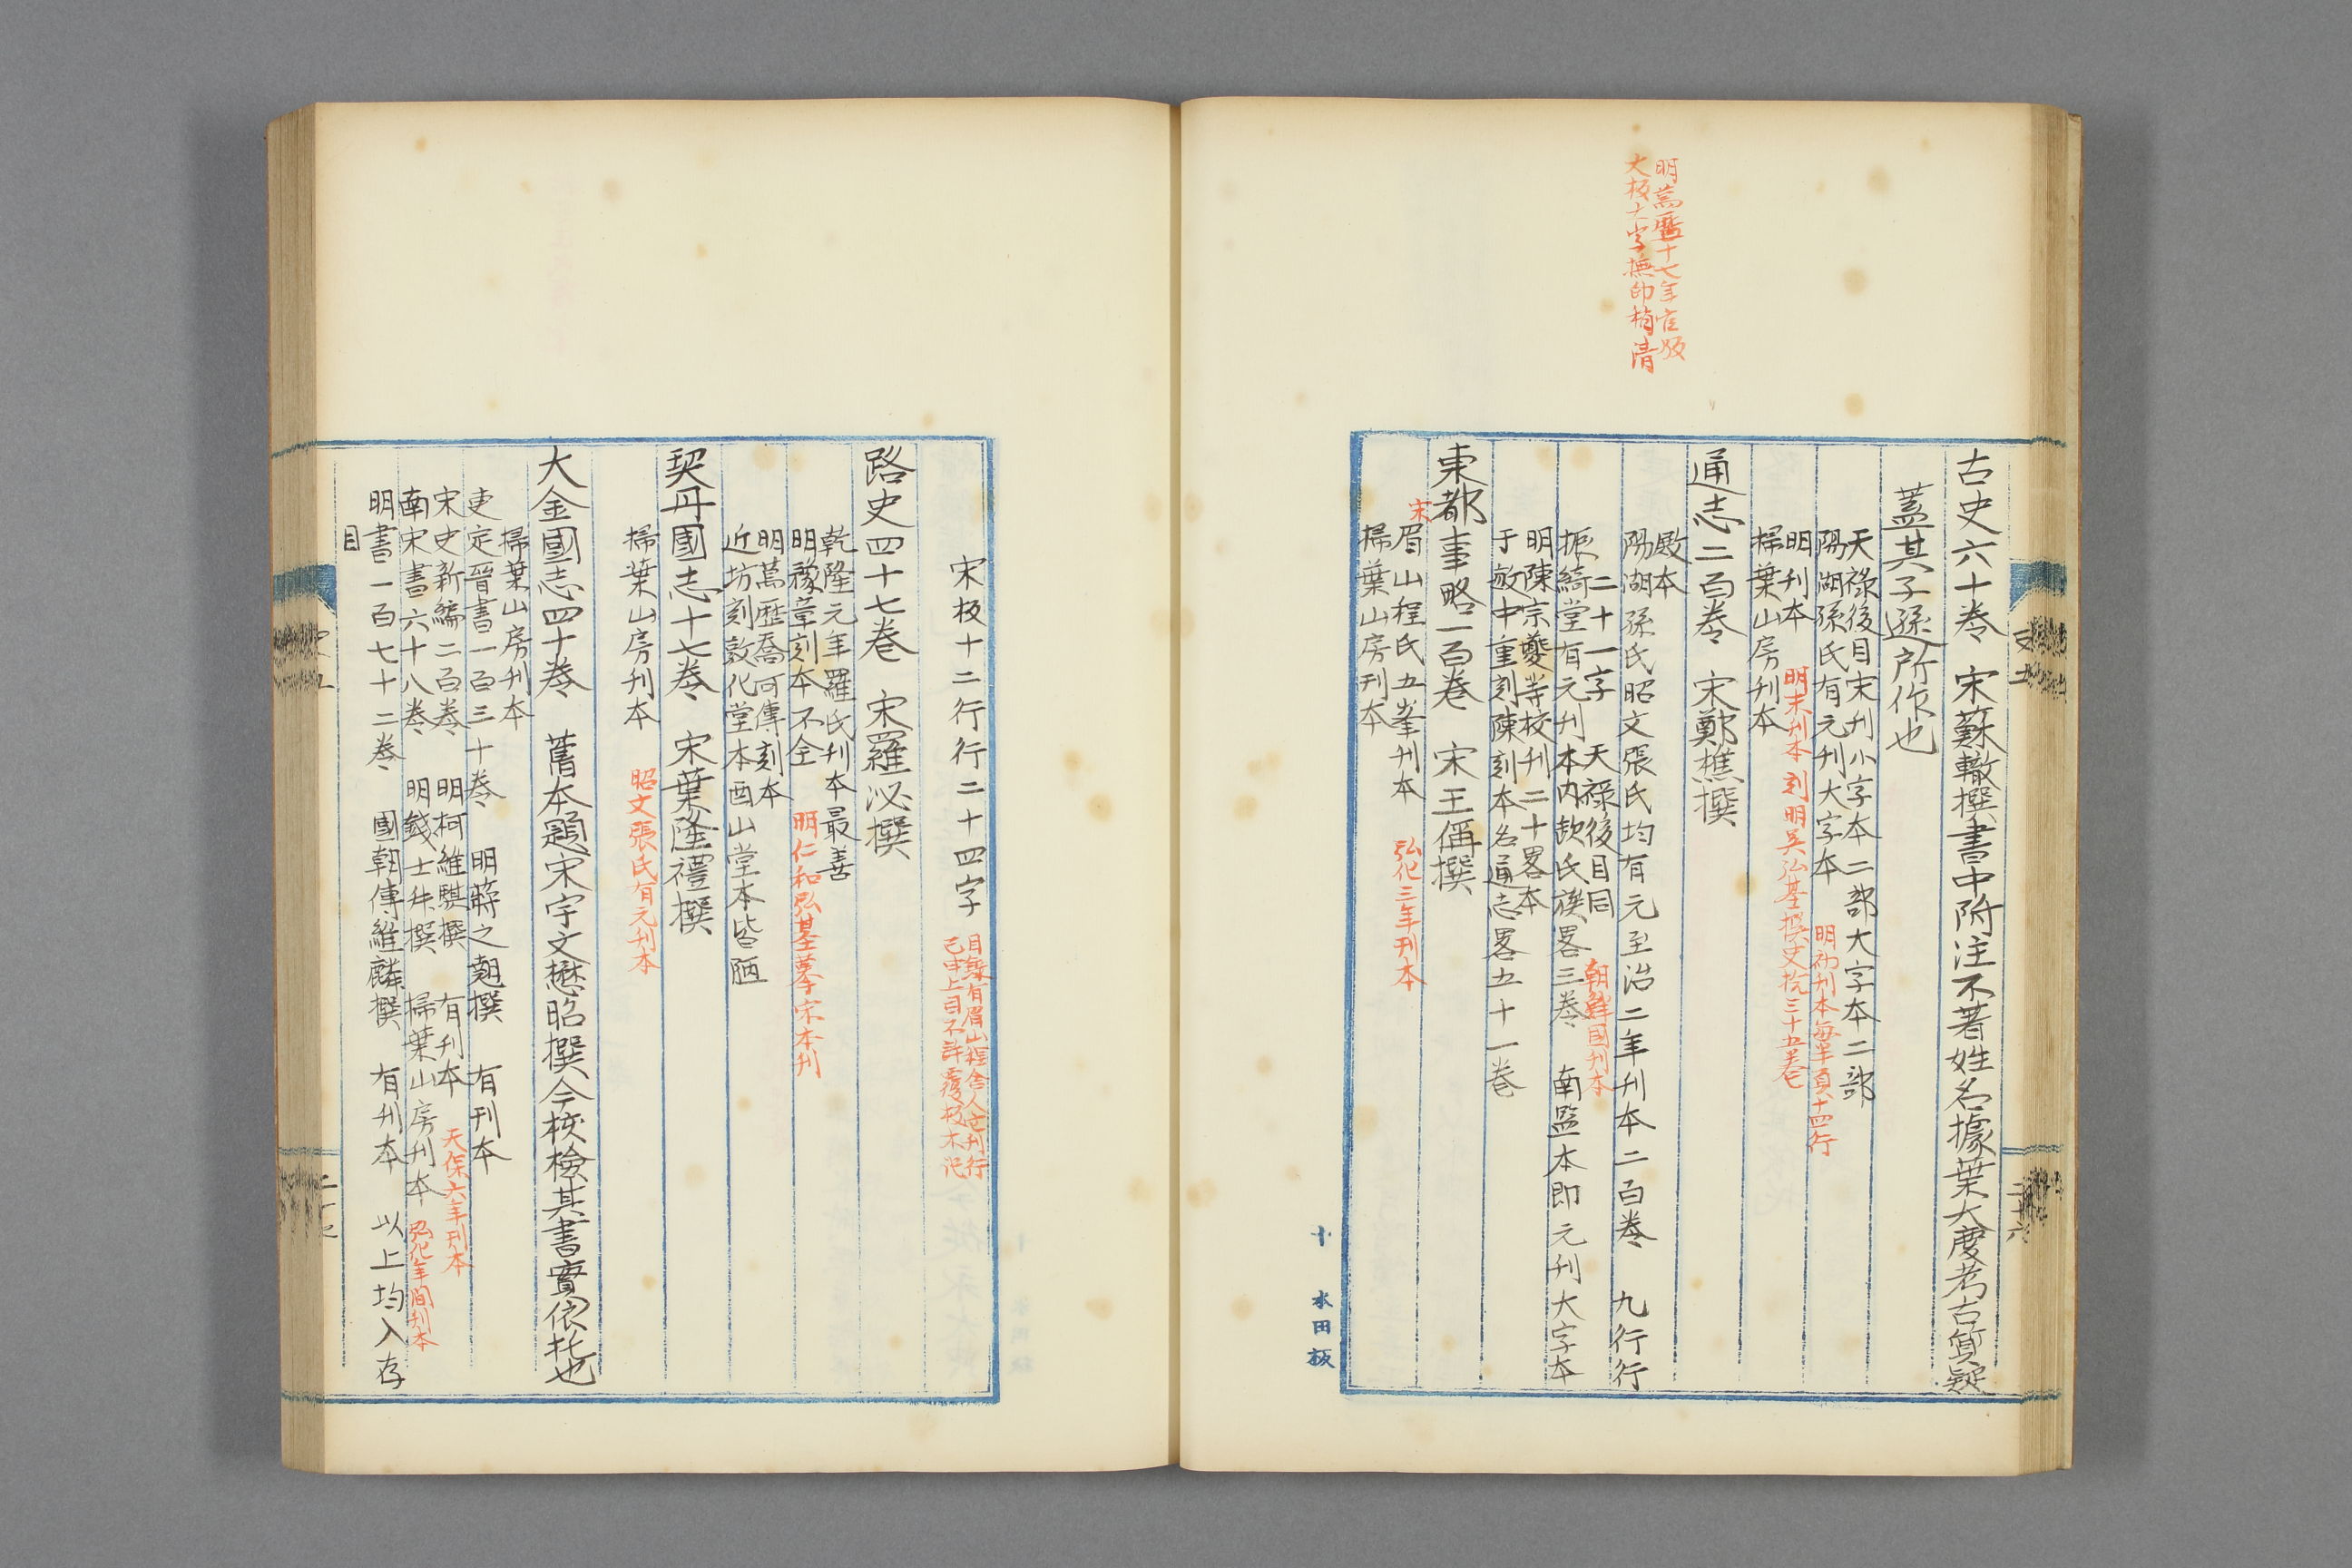 明萬曆十七年官版
大板大字撫印精清
古史六十卷　宋蘇轍撰書中附注不著姓名據葉大慶考古質疑
蓋其子遜所作也
天祿後目宋刊小字本二部大字本二部
陽湖孫氏有元刊大字本　明初刊本每半頁十四行
明刊本　明末刊本　刻明吳弘基撰史抗三十五卷
掃葉山房刊本
通志二百卷　宋鄭樵撰
殿本
陽湖孫氏昭文張氏均有元至治二年刊本二百卷　九行行
二十一字　天祿後目同　朝鮮國刊本
振綺堂有元刊本內缺氏族畧三卷　南監本即元刊大字本
明陳宗夔等校刊二十畧本
于敏中重刻陳刻本名通志畧五十一卷
東都事略一百卷　宋王偁撰
宋眉山程氏五峯刊本　弘化三年刊本
掃葉山房刊本
十
水田板
宋板十二行行二十四字　目錄有眉山程舍人宅刊行
已申上目不許覆板木記
路史四十七卷　宋羅泌撰
乾隆元年羅氏刊本最善
明豫章刻本不全　明仁和弘基摹宋本刊
明萬歷喬可傳刻本
近坊刻敦化堂本酉山堂本皆陋
契丹國志十七卷　宋葉隆禮撰
掃葉山房刊本　昭文張氏有元刊本
大金國志四十卷　舊本題宋宇文懋昭撰今校檢其書實依托也
掃葉山房刊本
吏定晉書一百三十卷　明蔣之翹撰　有刊本
宋史新編二百卷　明柯維騏撰　有刊本　天保六年刊本
南宋書六十八卷　明錢士升撰　掃葉山房刊本　弘化年間刊本
明書一百七十二卷　國朝傅維麟撰　有刊本　以上均入存
目